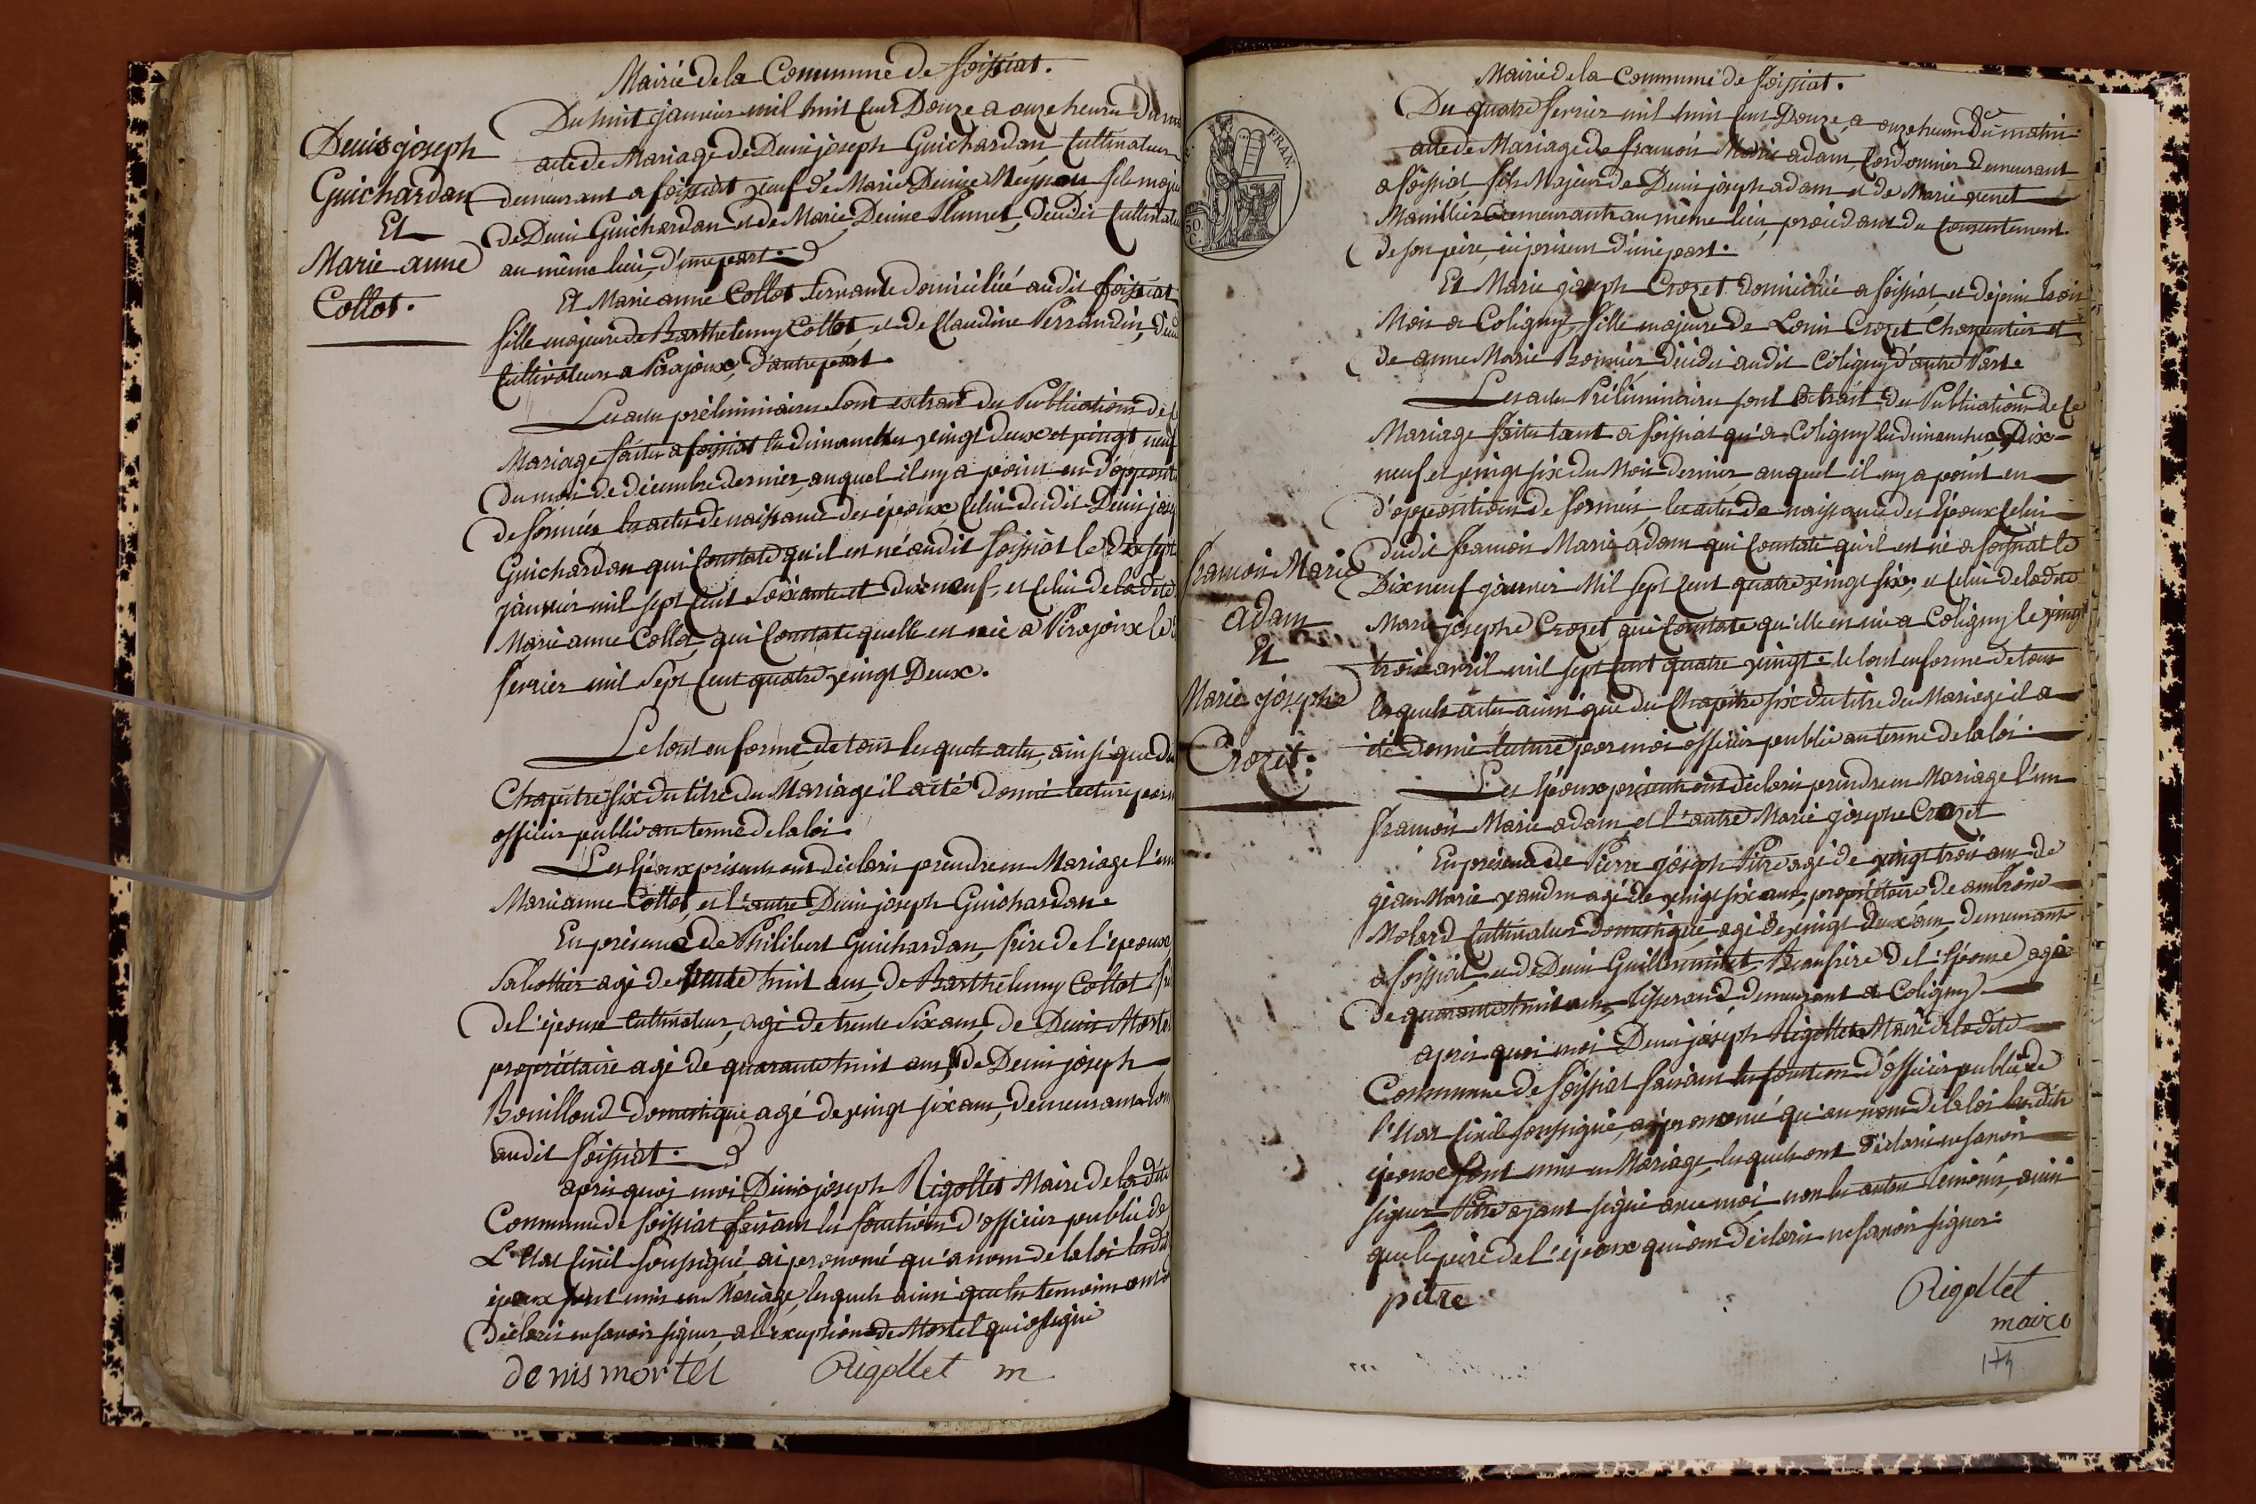 Mairie de la Commune de foissiat.
Denis joseph
Guichardan
Et
Marie anne
Collot.
Du huit janvier mil huit Cent Douze a onze heures du
acte de Mariage de Denis joseph Guichardan Cultivateur
demeurant a foissiat veuf de Marie Denise fils
de Denis Guichardan et de Marie Denise Plumet, deudit
au même lieu, d'une part.
Et Marie anne Collot servante domiciliée audit foissiat
fille majeure de Barthelemy Collot, et de Claudine Perraudin,
Cultivateurs a Pirajoux, d'autre part.
Les actes préliminaires sont extrait des Publications de
Mariage faites a foissiat les dimanches vingt deux et vingt neuf
du mois de décembre dernier, auquel il ny a point eu
de formées les actes de naissance des époux Celui dudit Denis
Guichardan qui Constate qu'il est né audit foissiat le dix sept
janvier mil sept Cent soixante et dix neuf, et Celui de ladite
Marie anne Collot, qui Constate quelle est née a Pirajoux le
fevrier mil sept Cent quatre vingt Deux.
Le tout en forme, de tous lesquels actes, ainsi que du
Chapitre six du titre du Mariage il a été donné lecture par
officier public au terme de la loi.
Les Epoux présents ont déclarés prendre en Mariage l'un
Marie anne Collot, et l'autre Denis joseph Guichardan.
En présence de Philibert Guichardan, frère de l'epoux
Sabottier agé de trente huit ans, de Barthélemy Collot
de l'épouse Cultivateur, agé de trente six ans, de Denis Mortel
propriétaire agé de quarante huit ans, de Denis joseph
Bouilloud domestique agé de vingt six ans, demeurant
audit foissiat.
après quoi moi Denis joseph Rigollet Maire de ladite
Commune de foissiat faisant les fonctions d'officier public de
L'Etat Civil soussigné, ai prononcé qu'a nom de la loi
époux sont unis en Mariage, lesquels ainsi que les temoins ont
déclarés ne savoir signer, a l'exception de Mortel qui a signé
denis mortel Rigollet m
Mairie de la Commune de foissiat.
françois Marie
adam
Et
Marie josephe
Crozet.
Du quatre fevrier mil huit Cent Douze, a onze heures du matin
acte de Mariage de françois Marie adam, Cordonnier demeurant
a foissiat fils Majeur de Denis joseph adam et de Marie
demeurants au même lieu, procédant du Consentement
de son père, ici présent d'une part.
Et Marie joseph Crozet domiciliée a foissiat, et depuis trois
Mois a Coligny, fille majeure de Louis Crozet Charpentier et
de anne Marie deudit audit Coligny d'autre Part.
Les actes Préliminaires sont Extrait des Publications de Ce
Mariage faites tant a foissiat qu'a Coligny les dimanches, Dix
neuf et vingt six du Mois dernier, auquel il ny a point eu
d'oppositions de formées, les actes de naissance des Epoux Celui
dudit françois Marie adam qui Constate qu'il est né a foissiat le
Dix neuf janvier Mil sept Cent quatre vingt six, et Celui de ladite
Marie josephe Crozet qui Constate qu'elle est née a Coligny le vingt
trois avril mil sept cent quatre vingt. le tout en forme de tous
lesquels actes ainsi que du Chapitre six du titre du Mariage il a
été donné lecture par moi officier public au terme de la loi.
Les Epoux présents ont déclarés prendre en Mariage l'un
françois Marie adam, et l'autre Marie josephe Crozet
En présence de Pierre joseph Pitre agé de vingt trois ans de
jean Marie agé de vingt six ans, propriétaire de ambroise
Molard Cultivateur domestique, agé de vingt deux ans, demeurants
a foissiat, et de Denis Guillerminet, Beaufrère de l'Epouse, agé
de quarante huit ans, tisserand demeurant a Coligny
après quoi moi Denis joseph Rigollet Maire de ladite
Commune de foissiat faisant les fonctions d'officier public de
l'Etat Civil soussigné, ai prononcé qu'au nom de la loi lesdits
époux sont unis en Mariage, lesquels ont déclarés ne savoir
signer Pitre ayant signé avec moi non les autres témoins, ainsi
que le père de l'époux qui ont déclarés ne savoir signer.
pitre Rigollet
maire